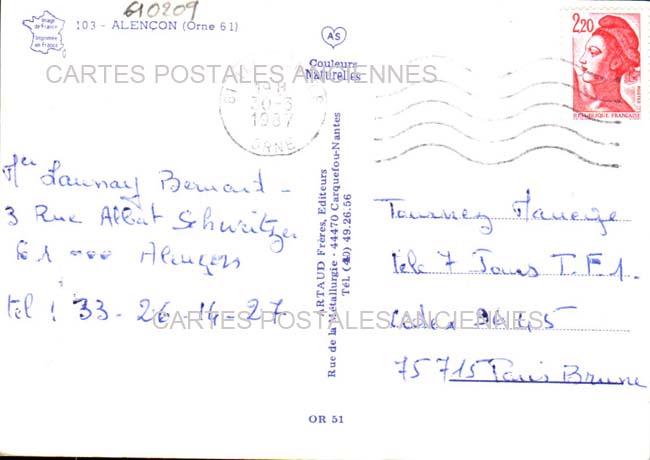 610209
Image de France
Imprimée en France
103 - ALENÇON (Orne 61)
AS
Couleurs Naturelles
2,20
POSTES
REPUBLIQUE FRANÇAISE
CARTES POSTALES ANCIENNES
61
18H
30-6
1987
ORNE
Mr Launay Bernard -
3 Rue Albert Schweitzer
61 000 Alençon
tel : 33-26-14-27
ARTAUD Frères, Editeurs
Rue de la Métallurgie - 44470 Carquefou-Nantes
Tél. (40) 49.26.56
Tournez Manège
tele 7 Jours T.F.1.
Cedex 45
75715 Paris Brune
CARTES POSTALES ANCIENNES
OR 51